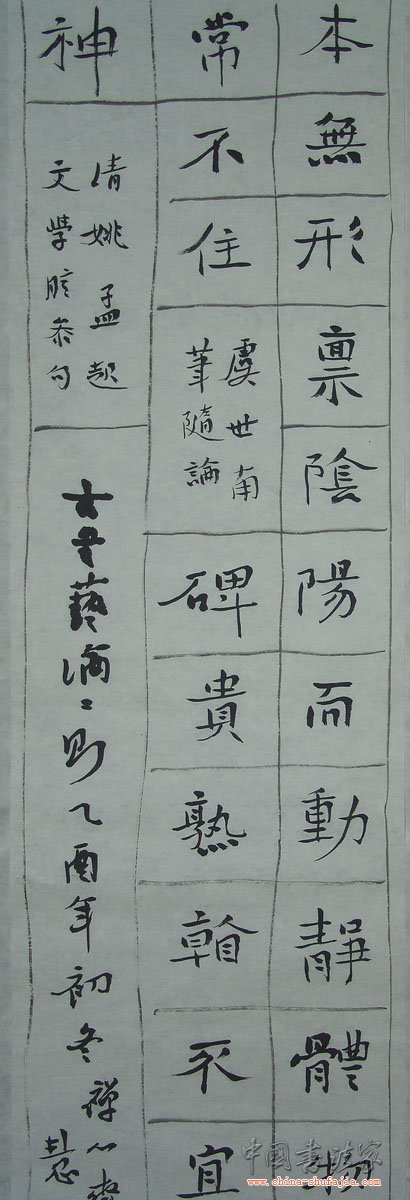 本無形禀陰陽而動靜體
常不住
虞世南
筆隨論
碑貴熟看不宜
神
清姚孟起
文學肊叅句
古書藝論二則乙酉年初冬禪心齋
中国書法家
www.china-shufajia.com